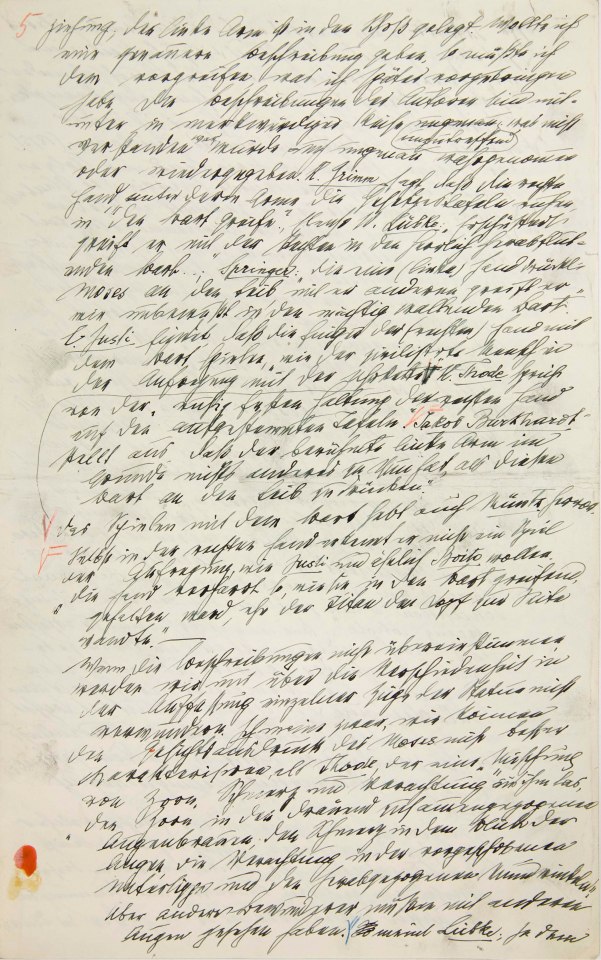 5
ziehung, der linke Arm ist in den Schoß gelegt. Wollte ich
eine genauere Beschreibung geben, so müßte ich
dem vorgreifen was ich später vorzubringen
habe. Die Beschreibungen der Autoren sind mit-
unter in merkwürdiger Weise Was nicht
unzutreffend
verstanden war wurde auch ungenau wahrgenommen
oder wiedergegeben. H. Grimm sagt, daß die rechte
Hand, unter deren Arme die Gesetzestafeln ruhen
in "den Bart greife". Ebenso W. Lübke: Erschüttert
greift er mit der Rechten in den herrlich herabflut-
enden Bart..." Springer: die eine (linke) Hand drückt
Moses an den Leib mit der anderen greift er
wie unbewußt in den mächtig wallenden Bart.
C. Justi findet, daß die Finger der (rechten) Hand mit
dem Bart spielen, "wie der zivilisirte Mensch in
der Aufregung mit der Uhrkette" H. Thode spricht
von der "ruhig festen Haltung der rechten Hand
auf den aufgestemmten Tafeln". Jakob Burkhardt
stellt aus, daß der berühmte linke Arm im
Grunde nichts anderes zu thun hat, als diesen
Bart an den Leib zu drücken"
das Spielen mit dem Bart hebt auch Müntz hervor.
Selbst in der rechten Hand erkennt er nicht ein Spiel
der Aufregung, wie Justi und ähnlich Boito wollen.
"die Hand verharrt so, wie sie, in den Bart greifend,
gehalten ward, ehe der Titan den Kopf zur Seite
wandte." —
Wenn die Beschreibungen nicht übereinstimmen,
werden wir uns über die Verschiedenheit in
der Auffassung einzelner Züge der Statue nicht
verwundern. Ich meine zwar, wir können
den Gesichtsausdruck des Moses nicht besser
charakterisiren als Thode, der eine "Mischung
von Zorn, Schmerz und Verachtung" aus ihm las,
"den Zorn in den dräuend zusammengezogenen
Augenbrauen, den Schmerz in dem Blick der
Augen, die Verachtung in der vorgeschobenen
Unterlippe und den herabgezogenen Mundwinkeln"
Aber andere Bewunderer müssen mit anderen
Augen gesehen haben. meint Lübke: In dem